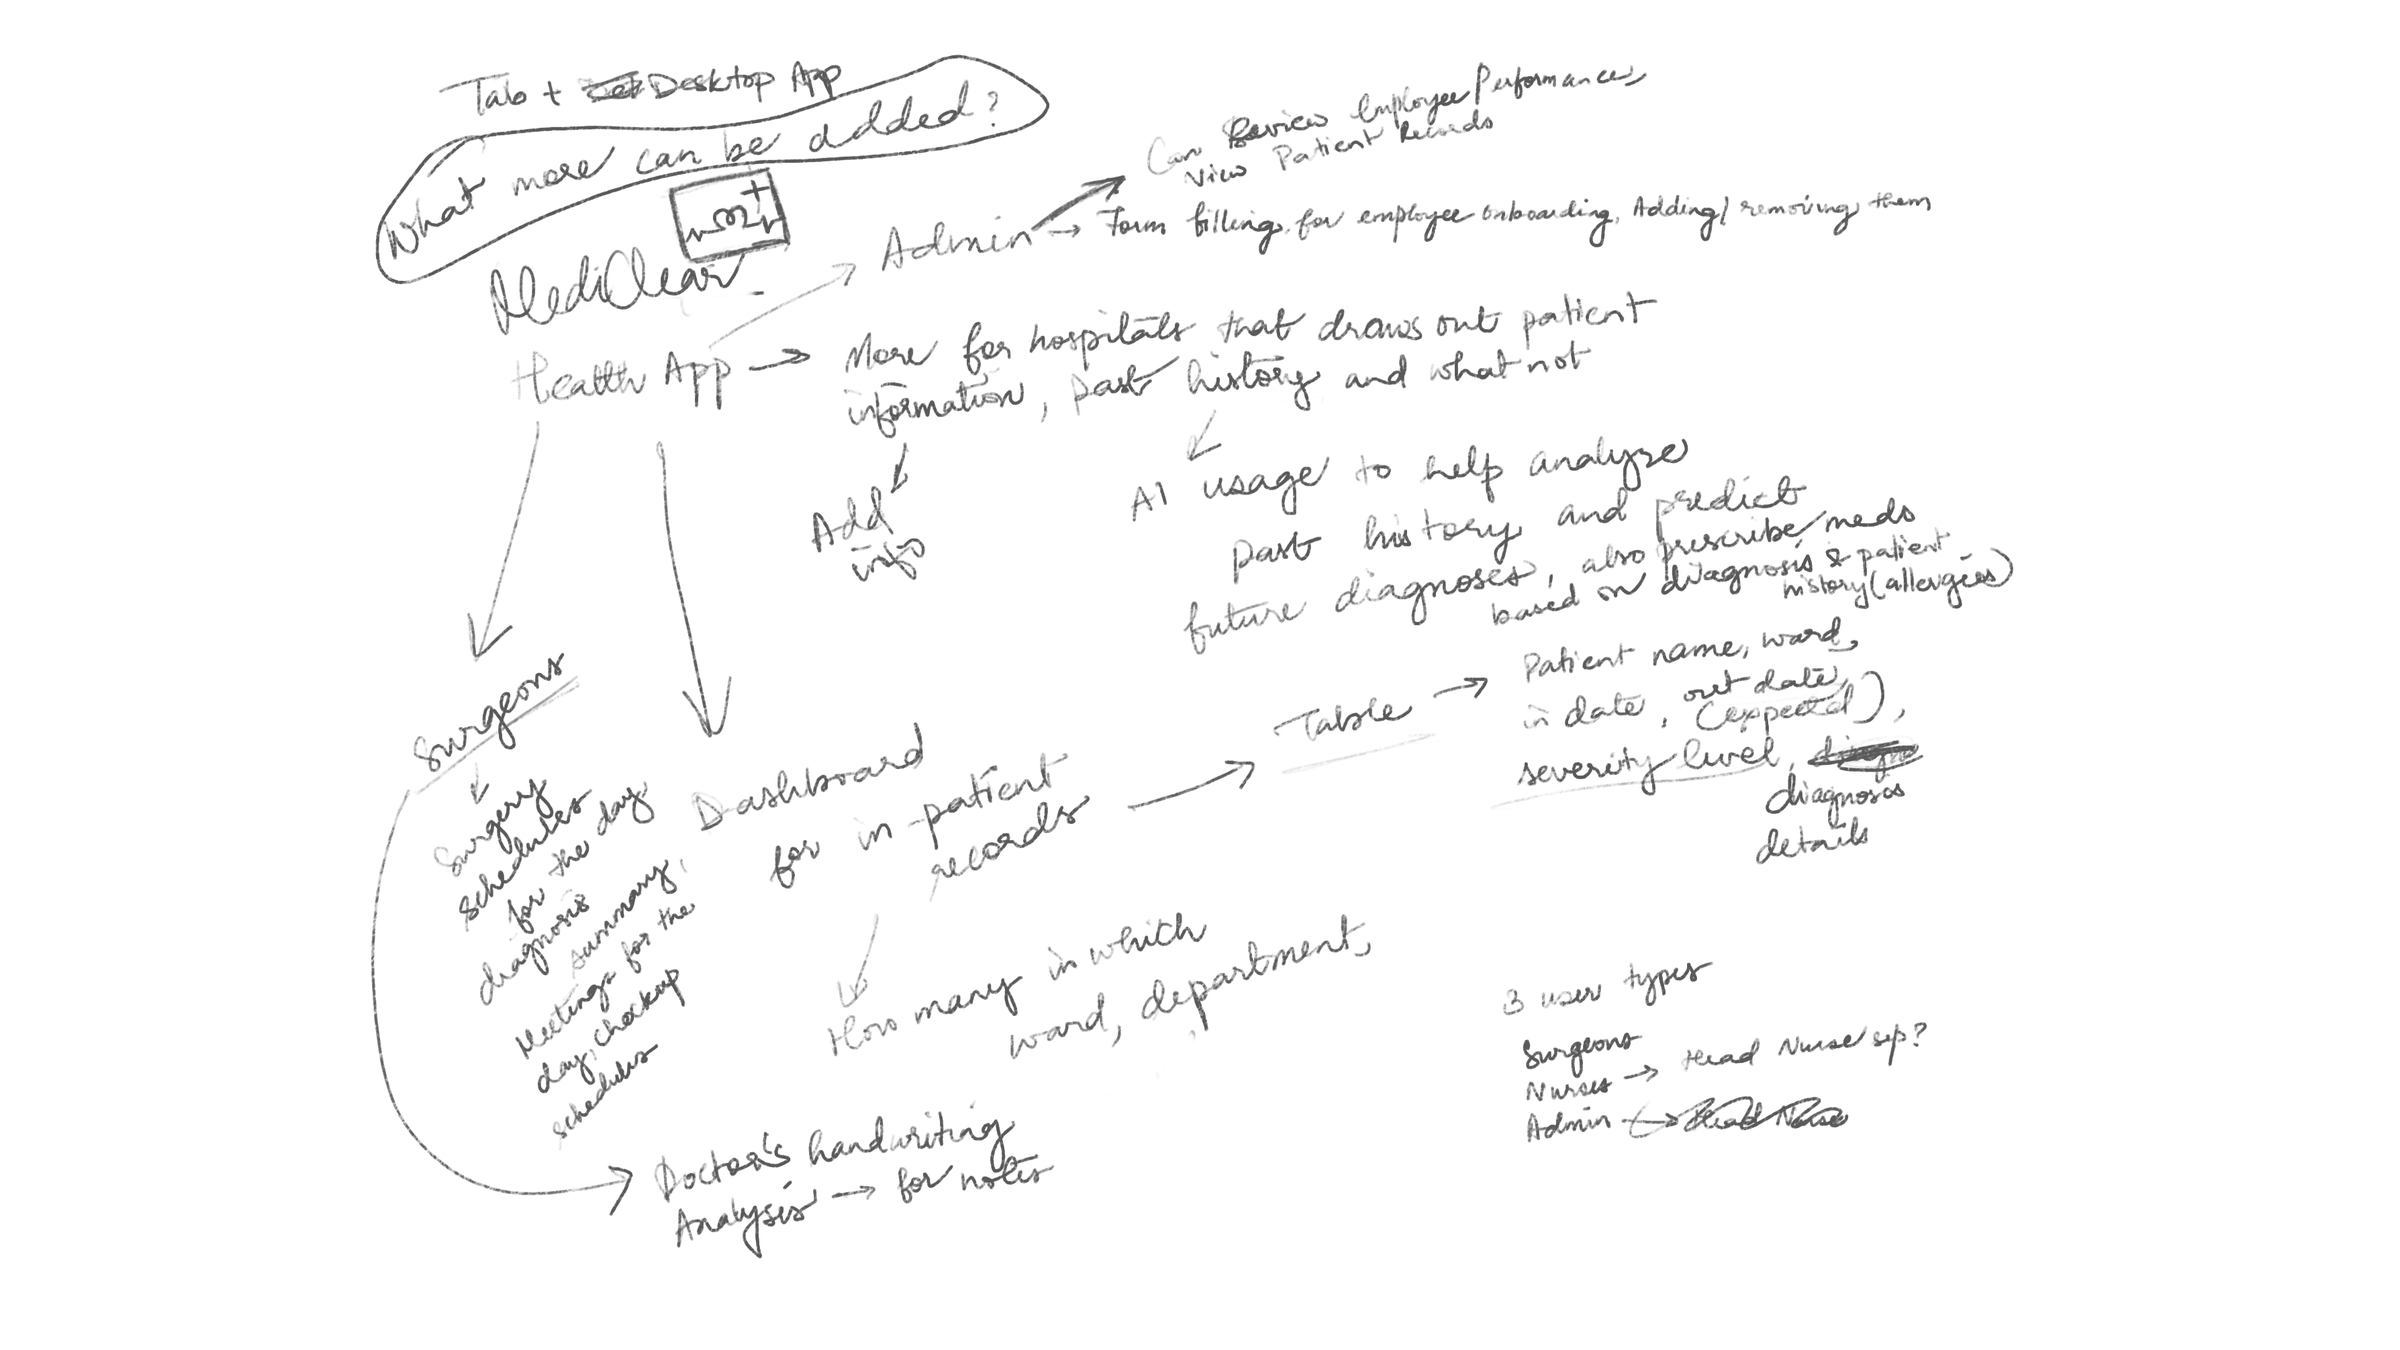 Tab + Desktop App
What more can be added?
MediClear
Health App → More for hospitals that draws out patient
information, past history and what not
Add
info
AI usage to help analyze
past history and predict
future diagnoses, also prescribe meds
based on diagnosis & patient
history (allergies)
Admin
Can Review Employee Performances,
View Patient Records
→ Form filling for employee onboarding, Adding/removing them
Surgeons
Surgery
schedules
for the day,
diagnosis
summary,
Meetings for the
day, checkup
schedules
Doctor's handwriting
Analysis → for notes
Dashboard
for in-patient
records
How many in which
ward, department,
Table →
Patient name, ward,
in date, out date,
(expected),
severity level,
diagnosis
details
3 user types
Surgeons
Nurses → Head Nurse sep?
Admin